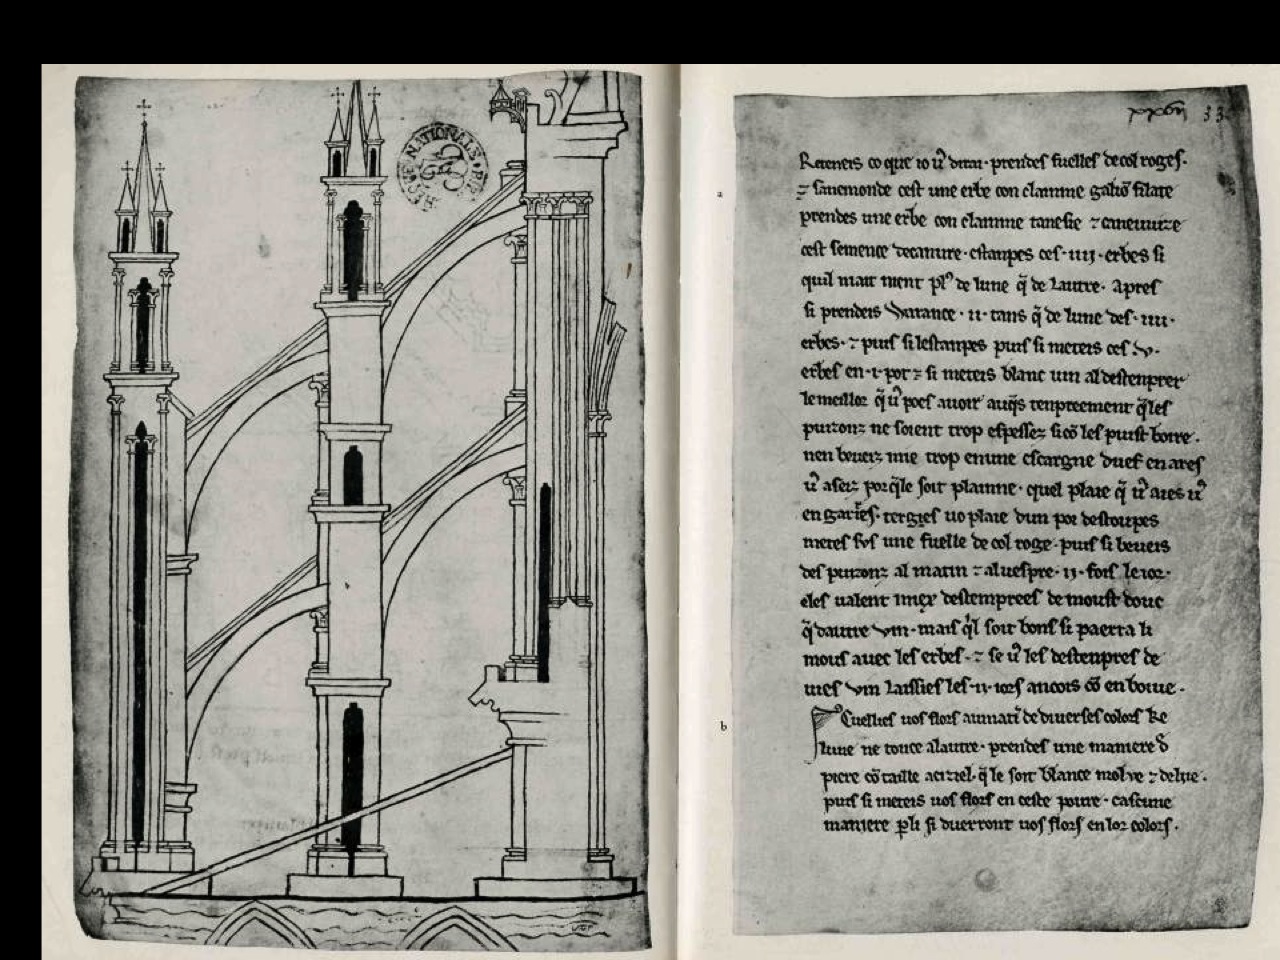 BIBLIOTHEQUE NATIONALE
33
a
Retenes co que io u dirai · prendes fuelles de col roges ·
⁊ sanemonde cest une erbe con claimme galion filate
prendes une erbe con claimme tanesie ⁊
cest semence · estanpes ces · iiij · erbes si
quil nait nient pl⁹ de lune q̃ de lautre · Apres
si prenderes Warance · ij · tans q̃ de lune des · iiij ·
erbes · ⁊ puis si lestanpes puis si meteres ces · v ·
erbes en · i · pot ⁊ si meteres blanc uin al destenprer
le meillor q̃ u poes avoir tenpreement q̃ les
puizonz ne soient trop espessez si cõ les puist boire ·
nen beuez mie trop en une escargne duef en ares
u asez por q̃le soit plainne · quel plaie q̃ u aies u
en garres · tergies uo plaie dun poi destoupes
metes sus une fuelle de col roge · puis si beveis
des puizonz al matin ⁊ al vespre · ij · fois le ior ·
eles ualent destemprees de moust douc
q̃ dautre vin · mais q̃l soit bons si paerra li
mous avec les erbes · ⁊ se u les destenpres de
vin laissies les · ij · iors ancois cõ en boive ·
b
Cuellies uos flors au mati de diverses colors ke
lune ne touce a lautre · prendes une maniere d
piere cõ taille a ciziel · q̃ le soit blance molue ⁊ delie ·
puis si meteis uos flors en ceste poure · cascune
maniere si duerront uos flors en lor colors ·